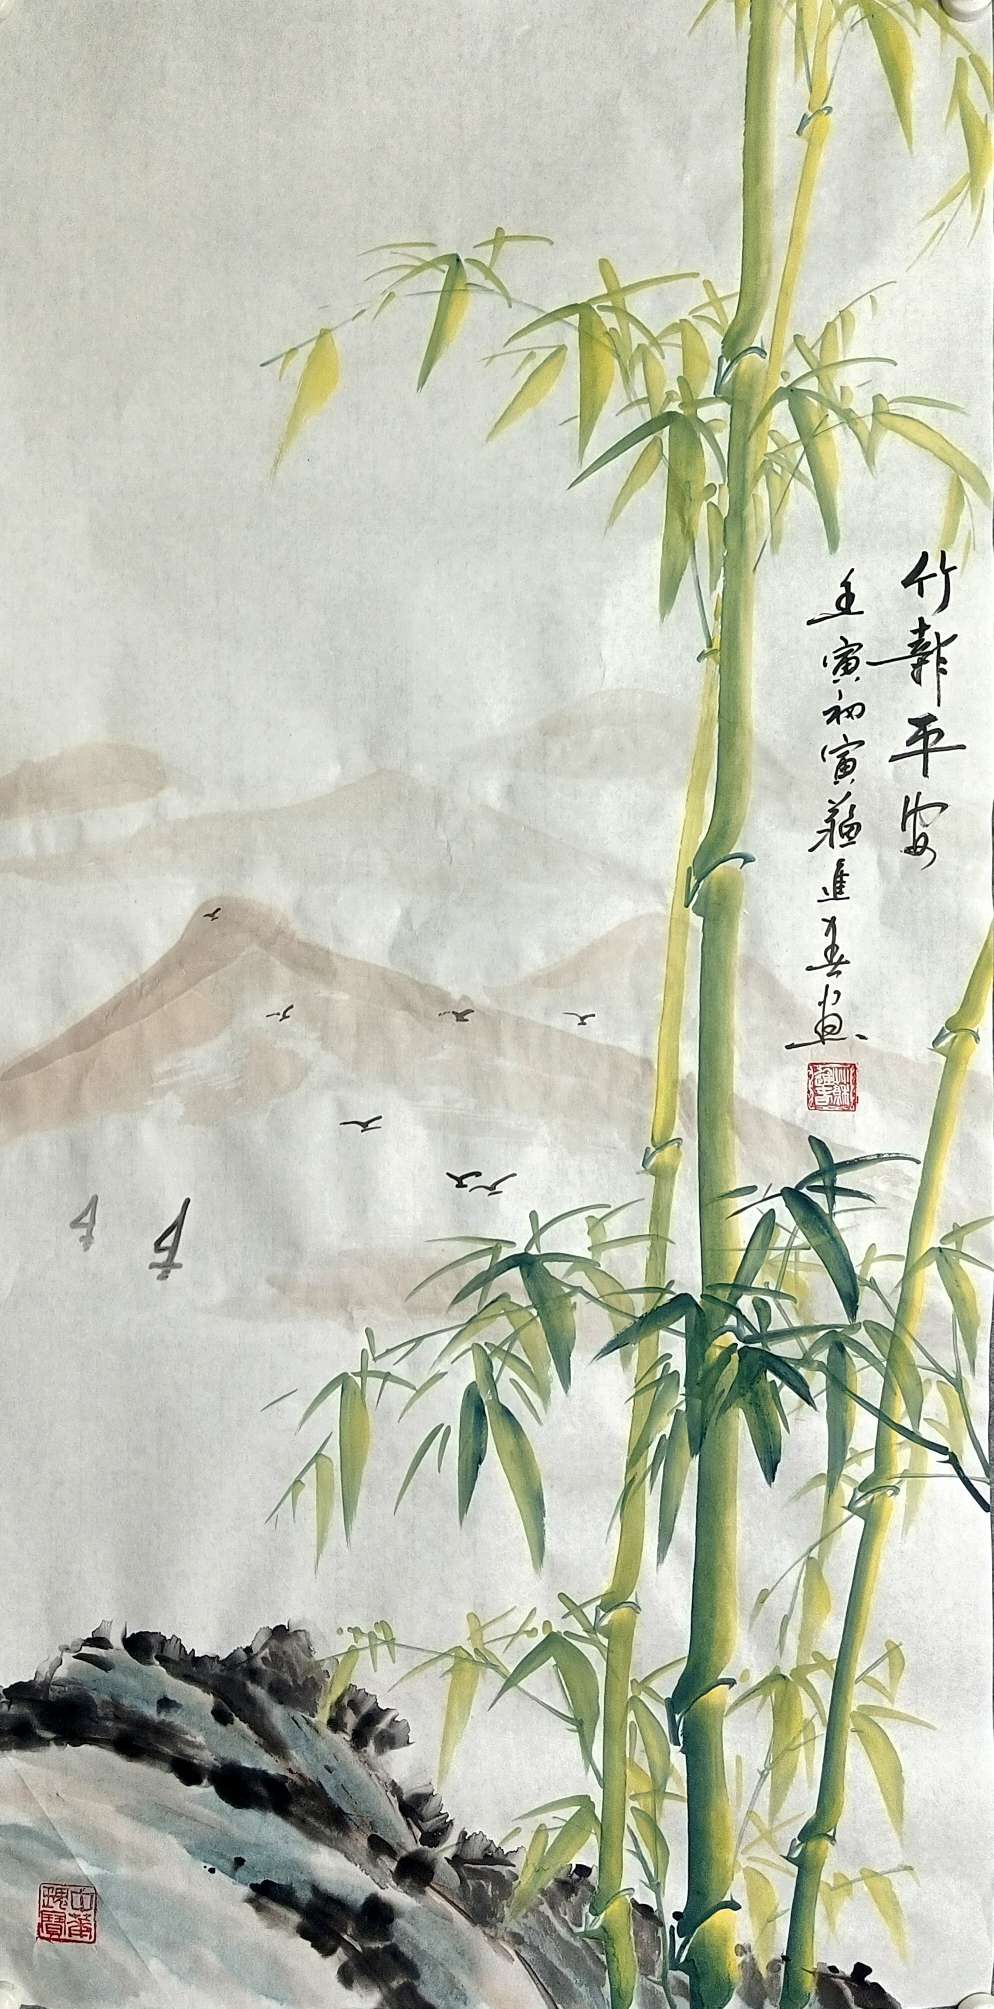 竹報平安
壬寅初寅蘇進春画